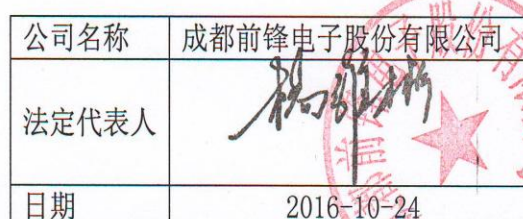 公司名称 成都前锋电子股份有限公司
法定代表人
日期 2016-10-24